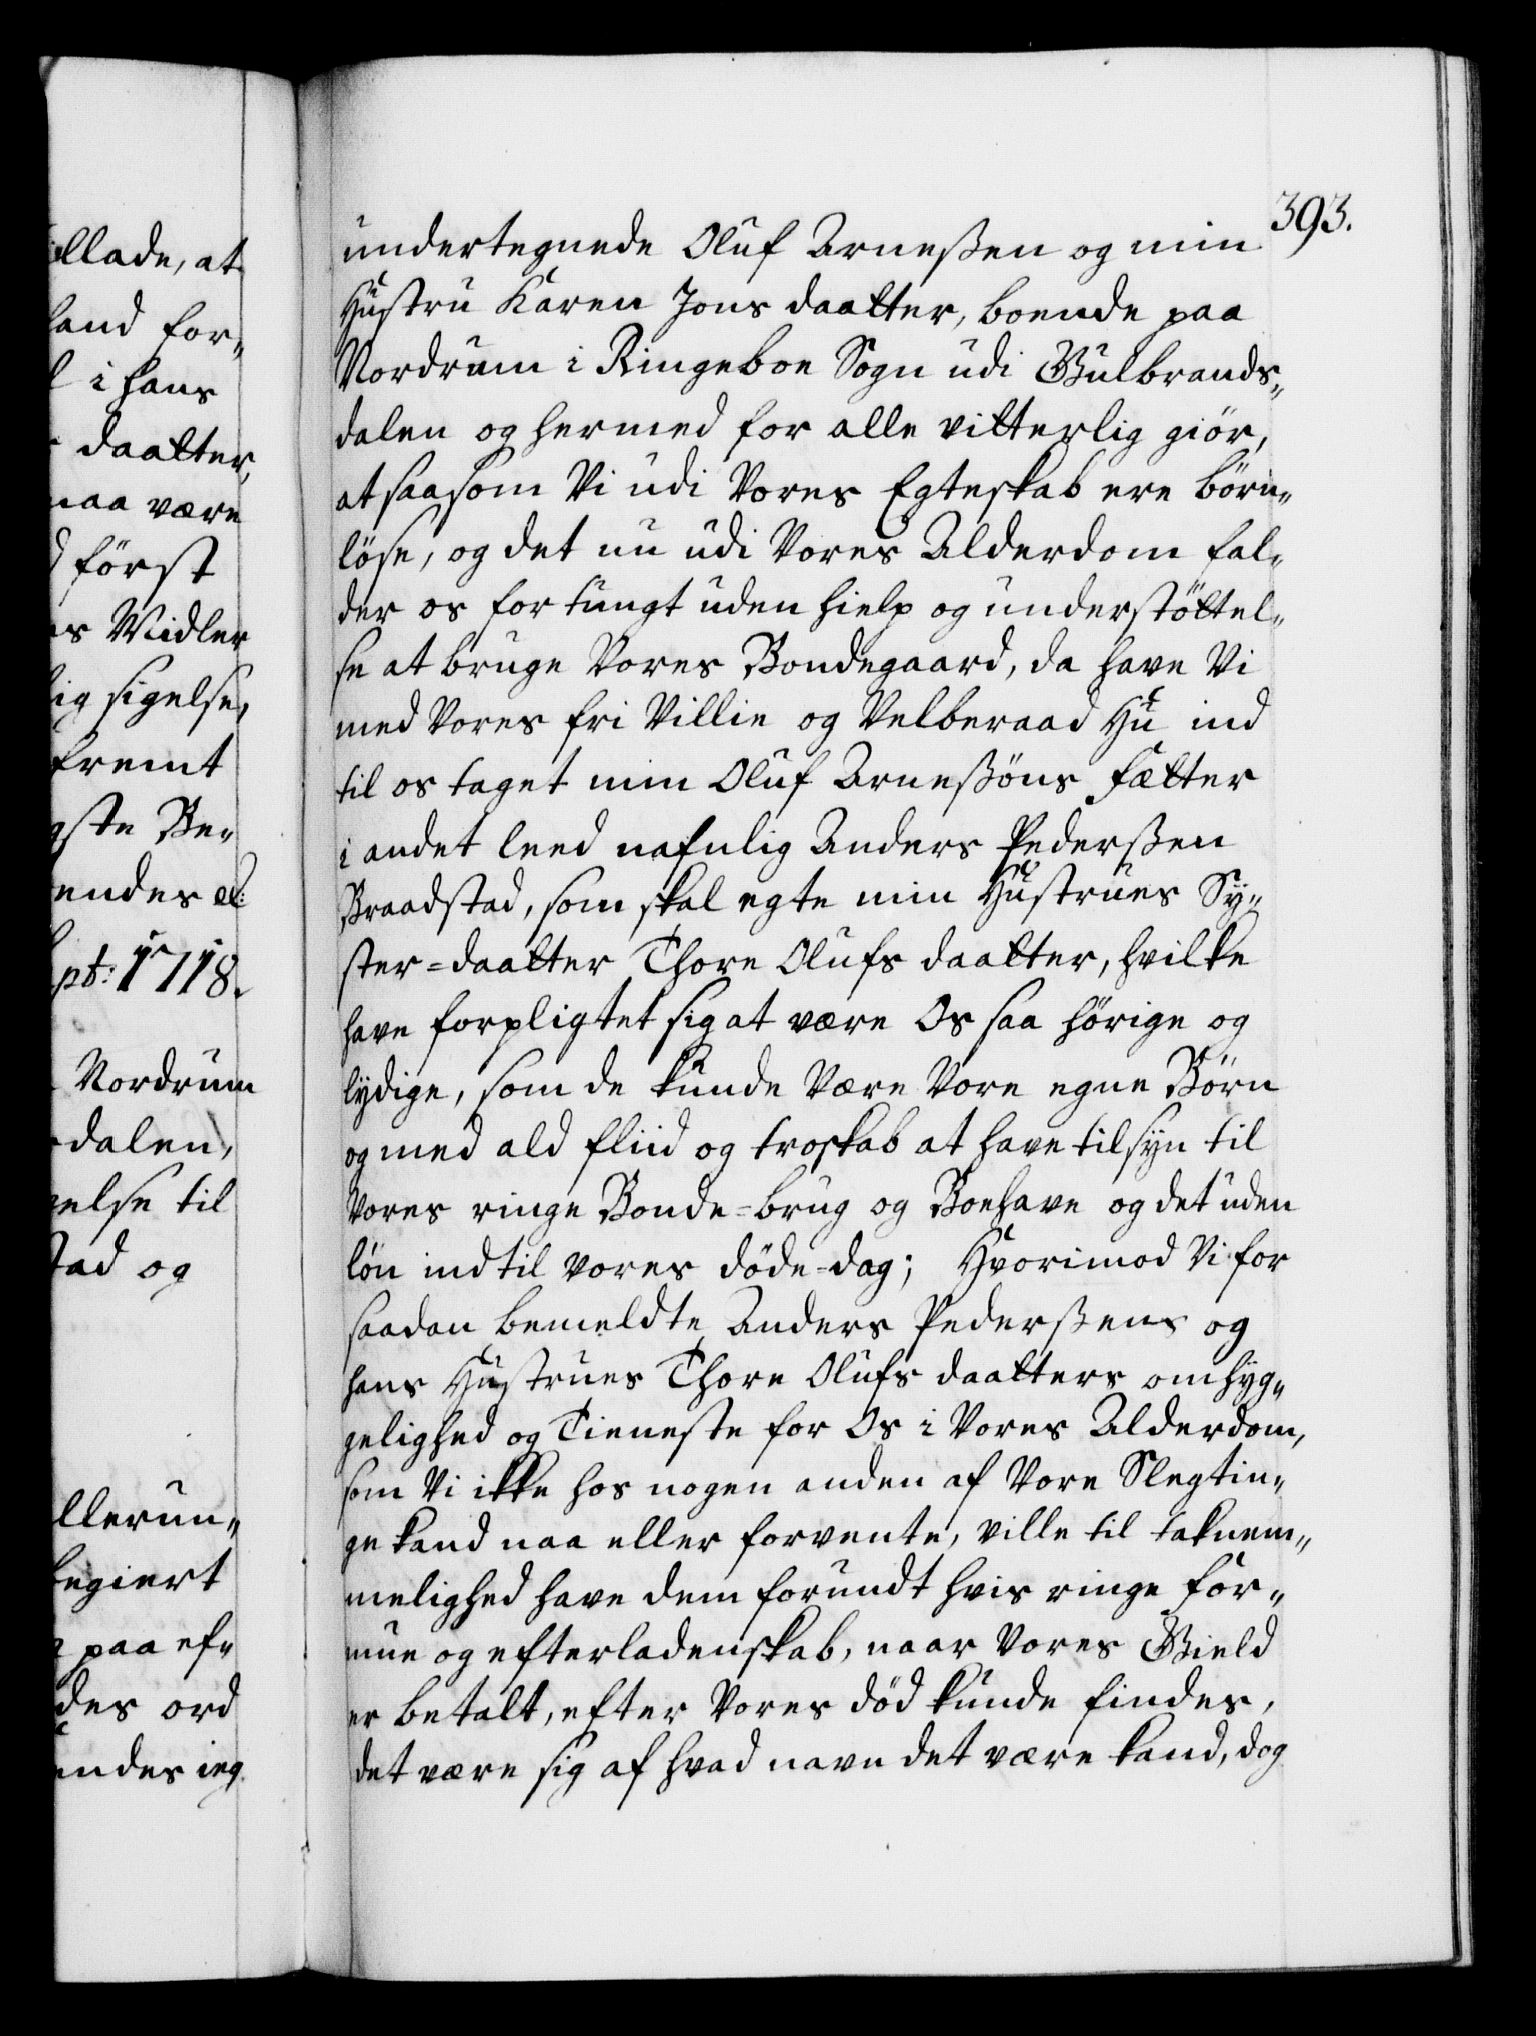 llade, at
hand for„
l i hans
daatter,
maa være
d först
es Midler
lig sigelse,
fremt
gste Be„
endes etc:
pt: 1718.
Nordrum
dalen,
else til
tad og
llerun„
legiert
paa ef„
des ord
endes ieg
393.
undertegnede Oluf Arneßen og min
Hustru Karen Jons daatter, boende paa
Nordrum i Ringeboe Sogn udi Gulbrands„
dalen og hermed for alle vitterlig giör,
at saasom Vi udi Vores Egteskab ere börn„
löse, og det nu udi Vores Alderdom fal„
der os for tungt uden hielp og understöttel„
se at bruge Vores Bondegaard, da have Vi
med Vores fri Villie og Velberaad Hu ind
til os taget min Oluf Arneßöns Fætter
i andet leed nafnlig Anders Pederßen
Braadstad, som skal egte min Hustrues Sy„
ster=daatter Thore Olufs daatter, hvilke
have forpligtet sig at være Os saa hörige og
lydige, som de kunde Være Vore egne Börn
og med ald fliid og troskab at have tilsyn til
Vores ringe Bonde=brug og Boehave og det uden
lön indtil vores döde-dag; Hvorimod Vi for
saadan bemeldte Anders Pederßens og
hans Hustrues Thore Olufs daatters omhyg„
gelighed og Tieneste for Os i Vores Alderdom,
som Vi ikke hos nogen anden af Vore Slegtin„
ge kand naa eller forvente, ville til taknem„
melighed have dem forundt hvis ringe for„
mue og efterladenskab, naar Vores Gield
er betalt, efter Vores död kunde findes,
det være sig af hvad navn det være kand, dog